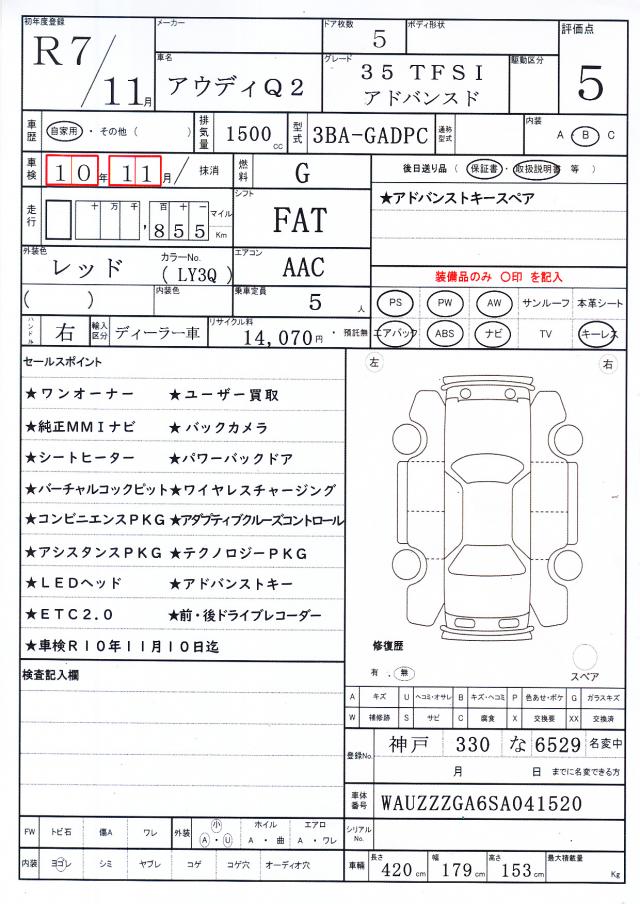 初年度登録
R7/11月
メーカー
ドア枚数
5
ボディ形状
評価点
5
車名
アウディQ2
グレード
35 TFSI
アドバンスド
駆動区分
車歴
自家用・その他( )
排気量
1500cc
型式
3BA-GADPC
通称型式
内装
A B C
車検
10年11月/
抹消
燃料
G
後日送り品(保証書・取扱説明書 等)
★アドバンストキースペア
走行
十万千百十一
,855
マイル
Km
シフト
FAT
外装色
レッド
カラーNo.
(LY3Q)
エアコン
AAC
装備品のみ 〇印 を記入
( )
内装色
乗車定員
5人
PS PW AW サンルーフ 本革シート
ハンドル
右
輸入区分
ディーラー車
リサイクル料
14,070円・預託無
エアバック ABS ナビ TV キーレス
セールスポイント
★ワンオーナー ★ユーザー買取
★純正MMIナビ ★バックカメラ
★シートヒーター ★パワーバックドア
★バーチャルコックピット★ワイヤレスチャージング
★コンビニエンスPKG ★アダプティブクルーズコントロール
★アシスタンスPKG ★テクノロジーPKG
★LEDヘッド ★アドバンストキー
★ETC2.0 ★前・後ドライブレコーダー
★車検R10年11月10日迄
左
右
修復歴
有.無
スペア
検査記入欄
A キズ U ヘコミ・オサレ B キズ・ヘコミ P 色あせ・ボケ G ガラスキズ
W 補修跡 S サビ C 腐食 X 交換要 XX 交換済
登録No.
神戸 330 な 6529 名変中
月 日 までに名変できる方
車体番号
WAUZZZGA6SA041520
シリアルNo.
FW トビ石 傷A ワレ
外装 小 A・U
ホイル A・曲
エアロ A・ワレ
内装 ヨゴレ シミ ヤブレ コゲ コゲ穴 オーディオ穴
車輌
長さ 420cm
幅 179cm
高さ 153cm
最大積載量 Kg